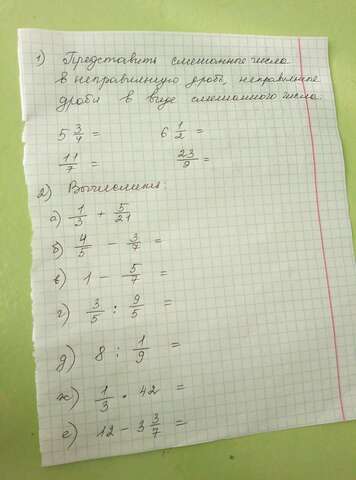 1) Представить смешанные числа
в неправильную дробь, неправильные
дроби в виде смешанного числа.
5 3/4 = 6 1/2 =
11/7 = 23/9 =
2) Вычислили:
а) 1/3 + 5/21
б) 4/5 - 3/7 =
в) 1 - 5/7 =
г) 3/5 : 9/5 =
д) 8 : 1/9 =
ж) 1/3 · 42 =
е) 12 - 3 3/7 =